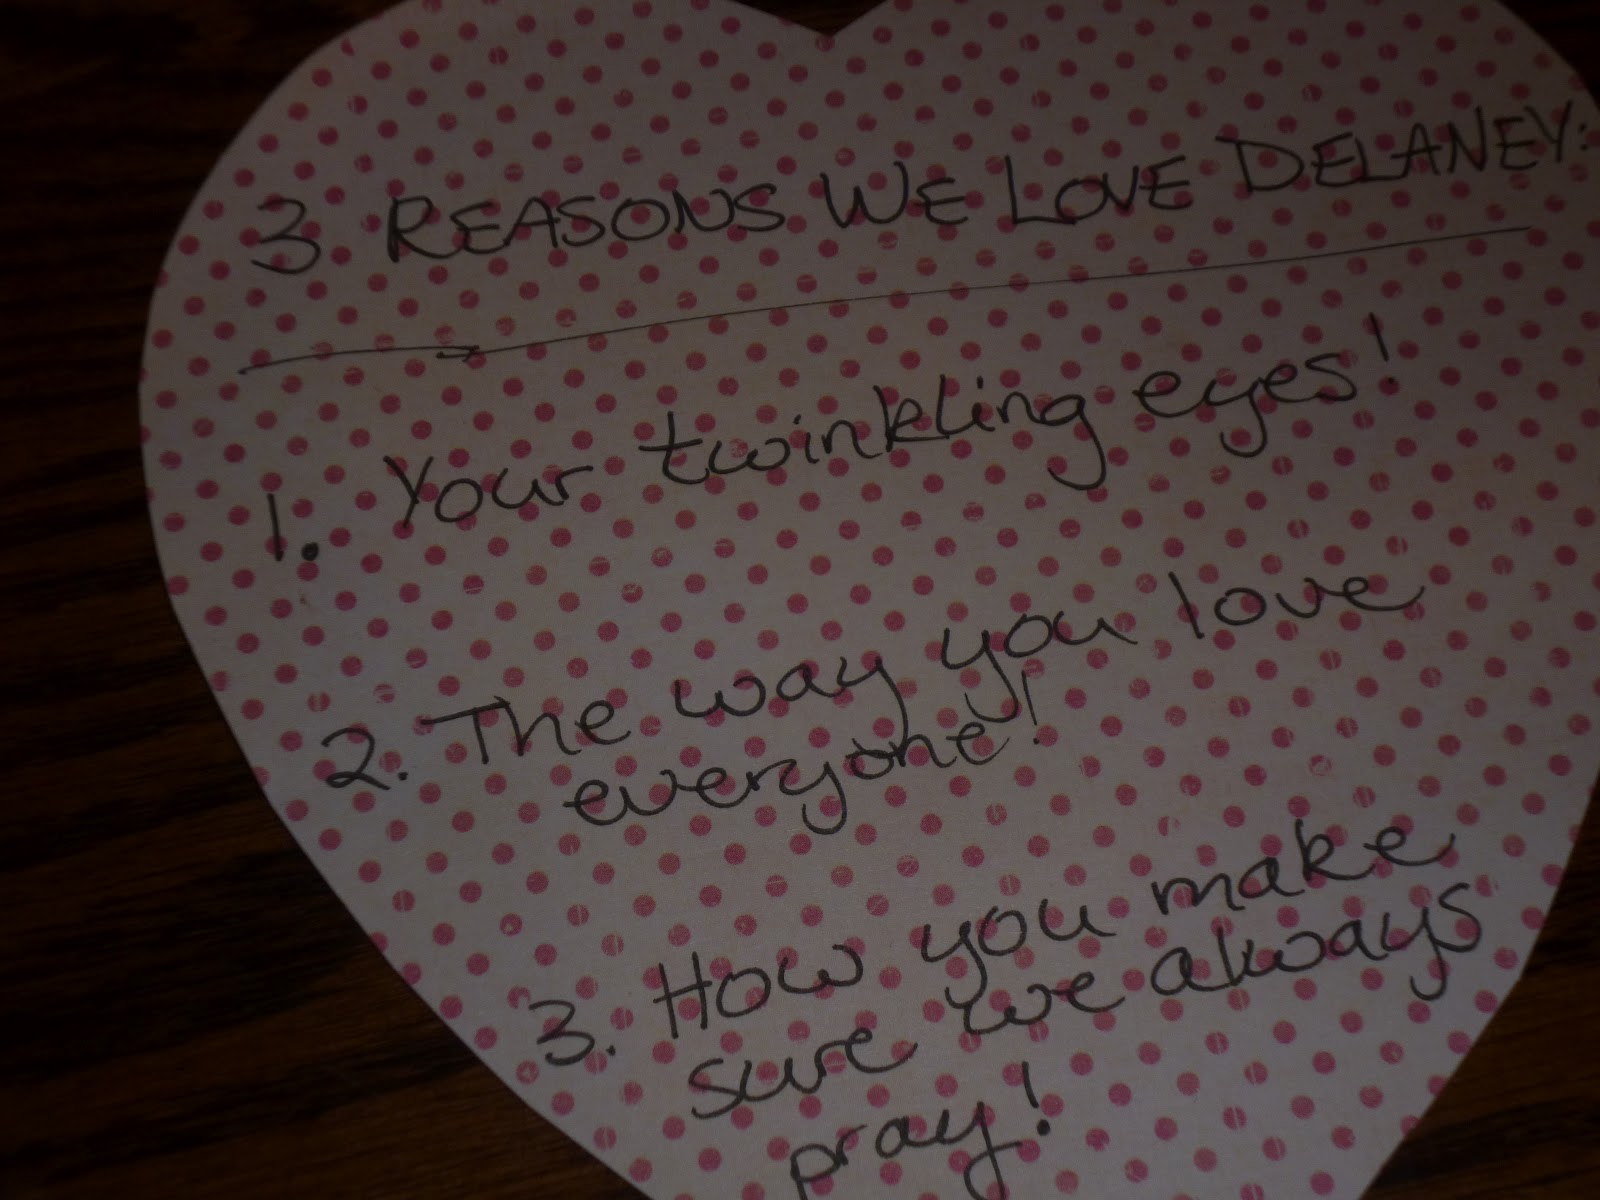 3 REASONS WE LOVE DELANEY:
1. Your twinkling eyes!
2. The way you love
everyone!
3. How you make
sure we always
pray!